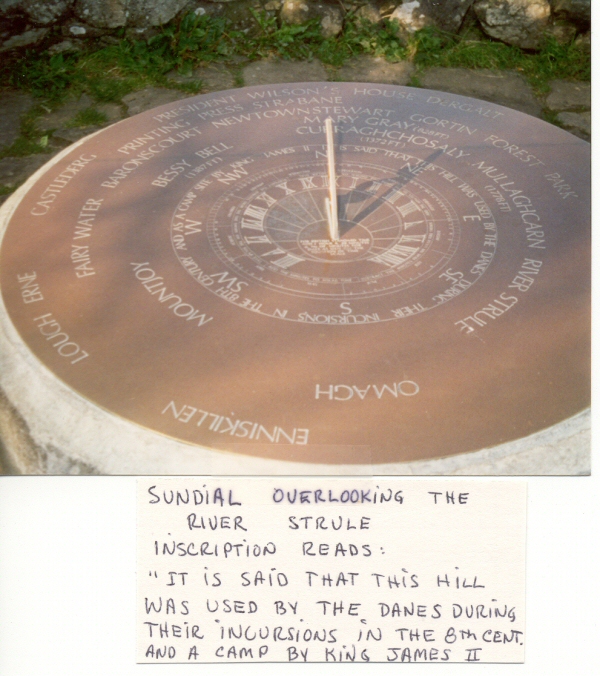 PRESIDENT WILSON'S HOUSE DERGALT
PRINTING PRESS STRABANE
CASTLEDERG
BARONSCOURT
NEWTOWNSTEWART
GORTIN FOREST PARK
MARY GRAY
BESSY BELL
CURRAGHCHOSALY
MULLAGHCARN
FAIRY WATER
RIVER STRULE
MOUNTJOY
LOUGH ERNE
OMAGH
ENNISKILLEN
N
NW
W
SW
S
SE
E
IT IS SAID THAT THIS HILL WAS USED BY THE DANES DURING THEIR INCURSIONS IN THE 8TH CENTURY AND AS A CAMP SITE BY KING JAMES II
SUNDIAL OVERLOOKING THE
RIVER STRULE
INSCRIPTION READS:
"IT IS SAID THAT THIS HILL
WAS USED BY THE DANES DURING
THEIR INCURSIONS IN THE 8TH CENT.
AND A CAMP BY KING JAMES II